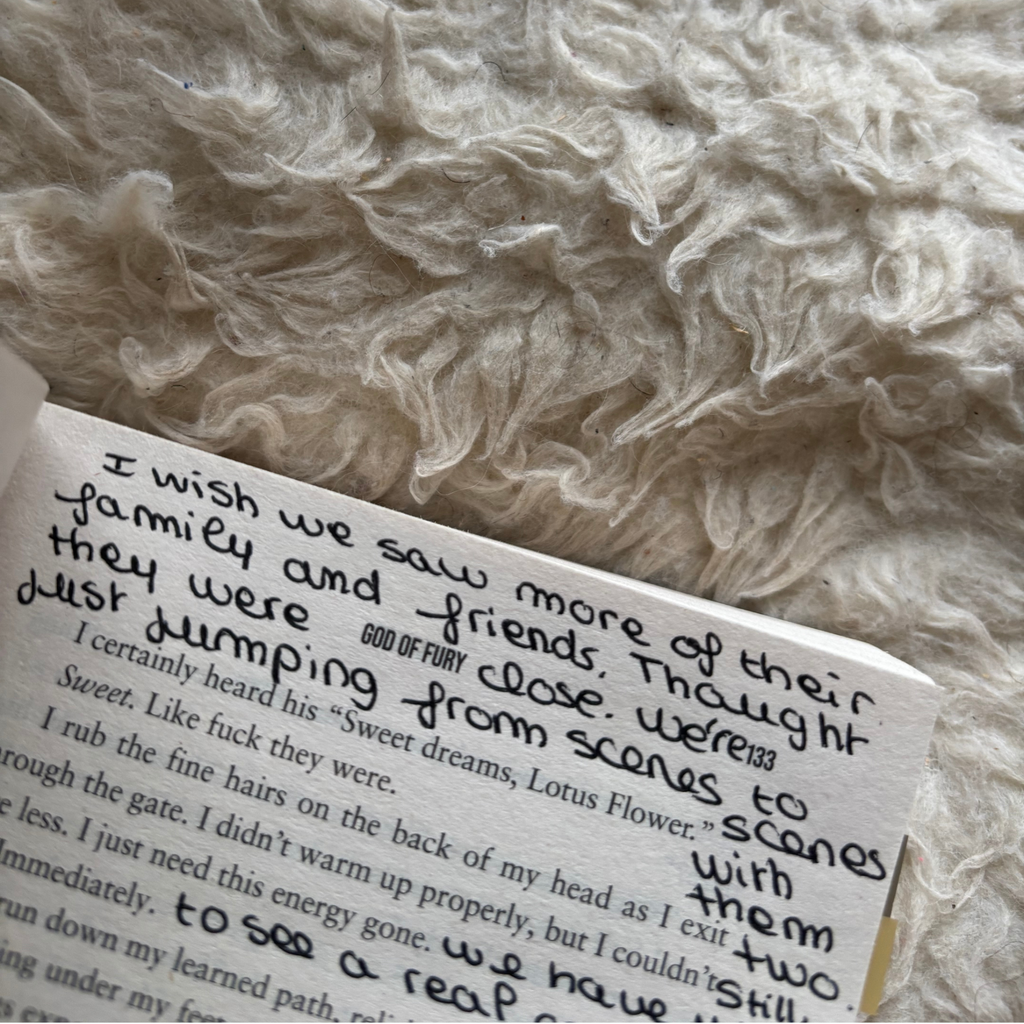 I wish we saw more of their
family and friends. Thought
they were close. We're
just jumping from scenes to
scenes
with
them
two.
Still,
we have
to see a real
GOD OF FURY
133
I certainly heard his “Sweet dreams, Lotus Flower.”
Sweet. Like fuck they were.
I rub the fine hairs on the back of my head as I exit
through the gate. I didn’t warm up properly, but I couldn’t
less. I just need this energy gone.
Immediately.
run down my learned path,
under my